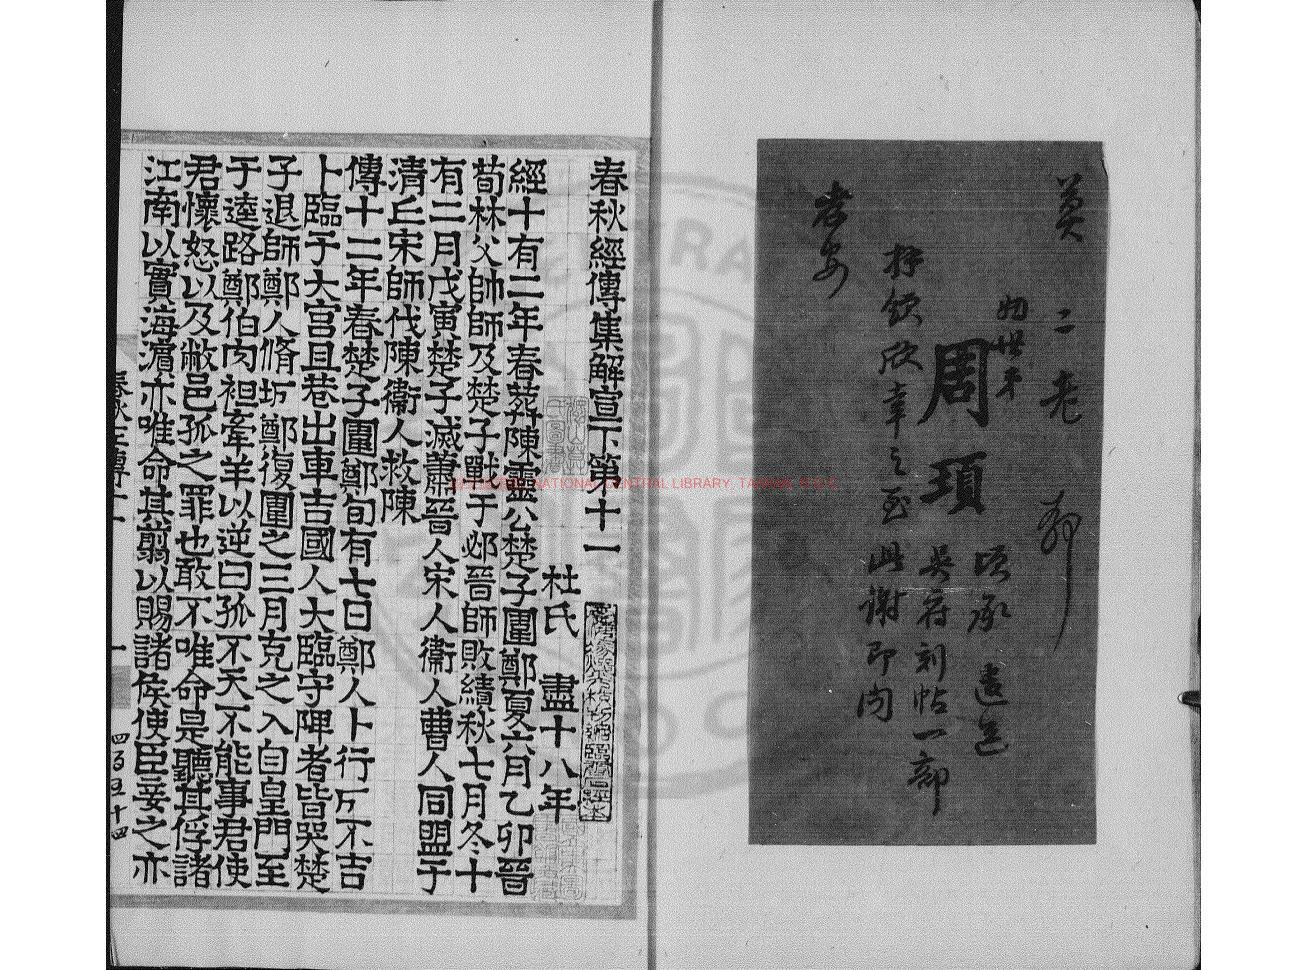 奠二老
周頊
頃承遣惠
吳府刻帖一部
拜領欣幸之至此謝即問
春秋經傳集解宣下第十一
杜氏 盡十八年
經十有二年春葬陳靈公楚子圍鄭夏六月乙卯晉
荀林父帥師及楚子戰于邲晉師敗績秋七月冬十
有二月戊寅楚子滅蕭晉人宋人衞人曹人同盟于
清丘宋師伐陳衞人救陳
傳十二年春楚子圍鄭旬有七日鄭人卜行成不吉
卜臨于大宮且巷出車吉國人大臨守陴者皆哭楚
子退師鄭人脩城鄭復圍之三月克之入自皇門至
于逵路鄭伯肉袒牽羊以逆曰孤不天不能事君使
君懷怒以及敝邑孤之罪也敢不唯命是聽其俘諸
江南以實海濱亦唯命其翦以賜諸侯使臣妾之亦
四百五十四
NATIONAL CENTRAL LIBRARY, TAIWAN, R.O.C.